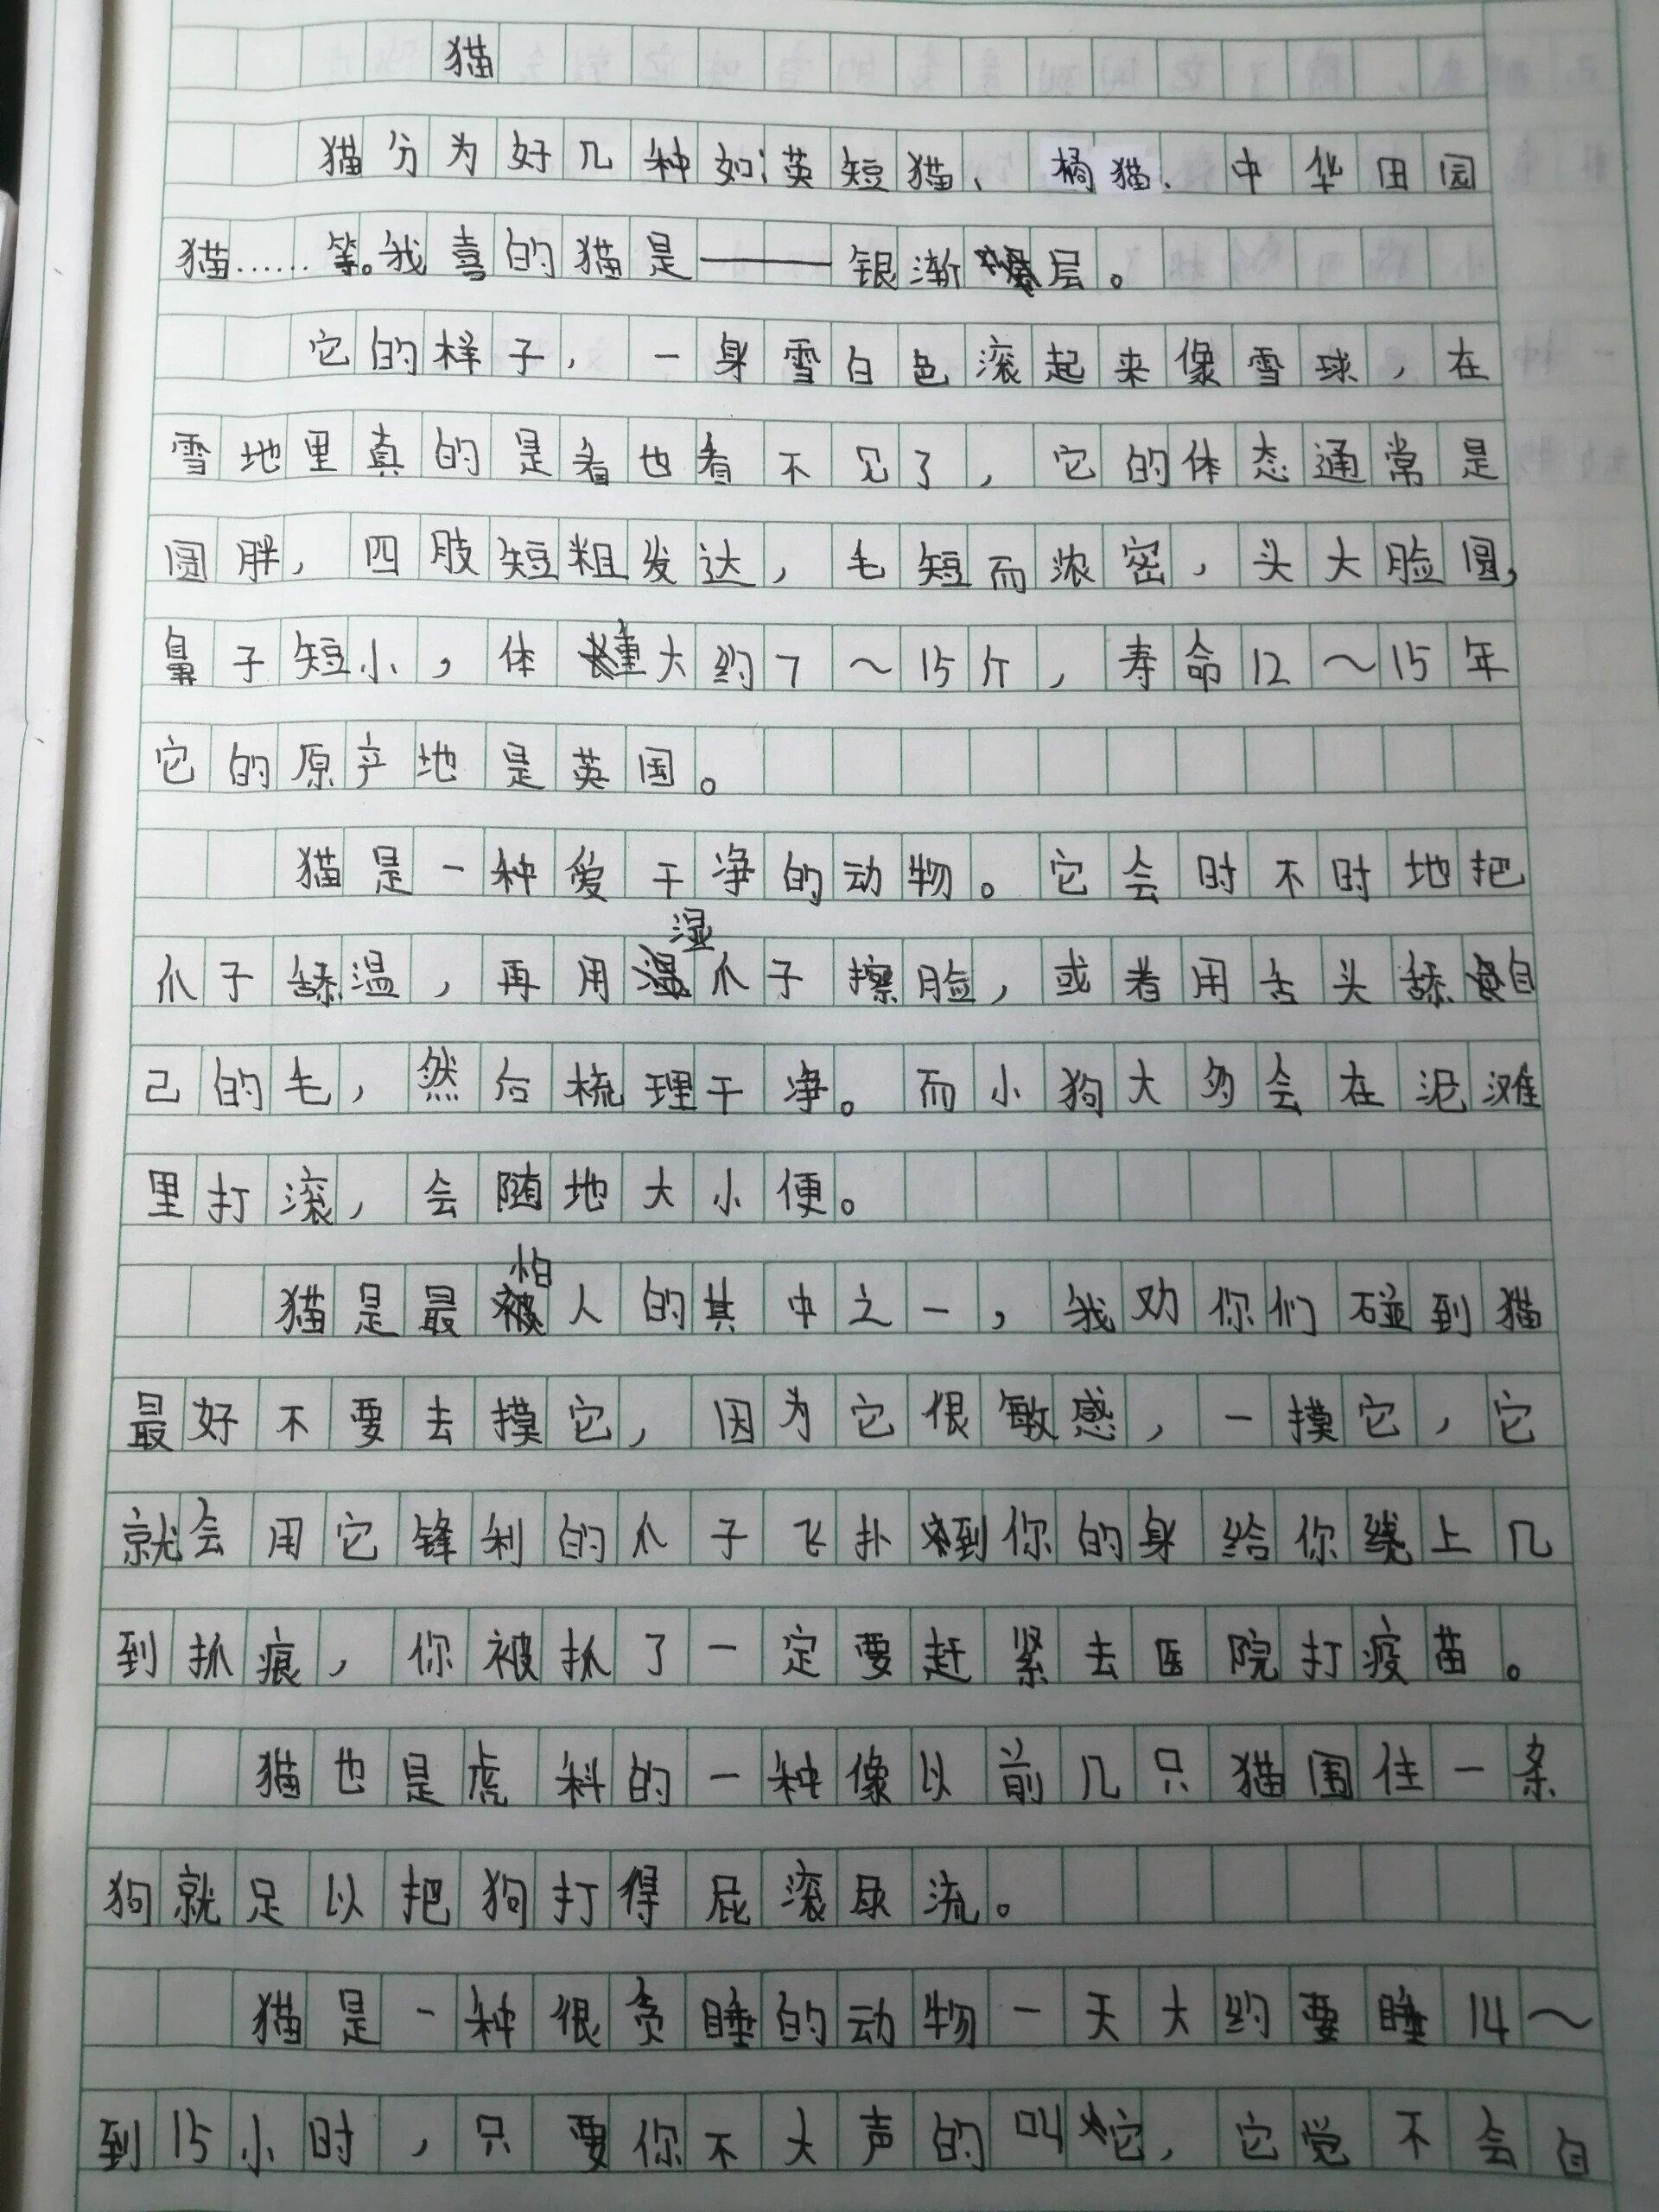 猫
猫分为好几种如:英短猫、橘猫、中华田园
猫……等。我喜的猫是——银渐层。
它的样子，一身雪白色滚起来像雪球，在
雪地里真的是看也看不见了，它的体态通常是
圆胖，四肢短粗发达，毛短而浓密，头大脸圆，
鼻子短小，体重大约7～15斤，寿命12～15年
它的原产地是英国。
猫是一种爱干净的动物。它会时不时地把
爪子舔温，再用湿爪子擦脸，或者用舌头舔自
己的毛，然后梳理干净。而小狗大多会在泥滩
里打滚，会随地大小便。
猫是最怕人的其中之一，我劝你们碰到猫
最好不要去摸它，因为它很敏感，一摸它，它
就会用它锋利的爪子飞扑到你的身给你绕上几
到抓痕，你被抓了一定要赶紧去医院打疫苗。
猫也是虎科的一种像以前几只猫围住一条
狗就足以把狗打得屁滚尿流。
猫是一种很贪睡的动物一天大约要睡14～
到15小时，只要你不大声的叫它，它觉不会自